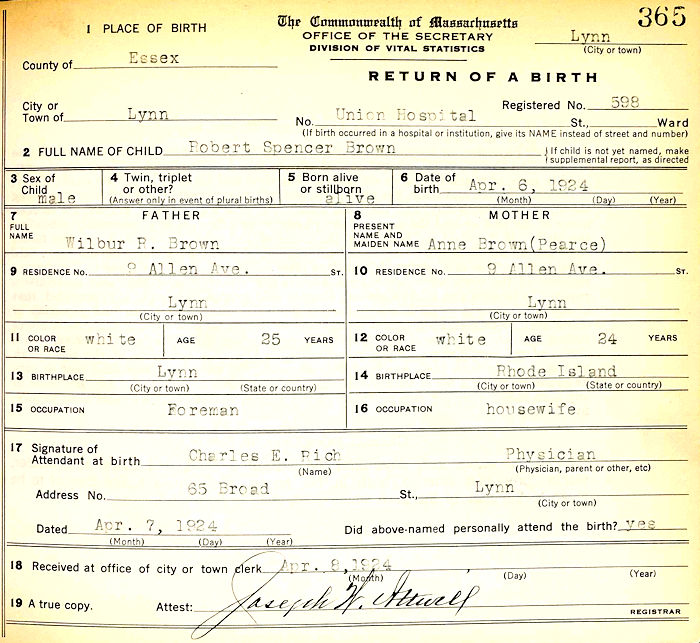 365
1 PLACE OF BIRTH
The Commonwealth of Massachusetts
OFFICE OF THE SECRETARY
DIVISION OF VITAL STATISTICS
Lynn
(City or town)
County of Essex
RETURN OF A BIRTH
Registered No. 598
City or
Town of Lynn No. Union Hospital St., Ward
(If birth occurred in a hospital or institution, give its NAME instead of street and number)
2 FULL NAME OF CHILD Robert Spencer Brown
} If child is not yet named, make
supplemental report, as directed
3 Sex of
Child male
4 Twin, triplet
or other?
(Answer only in event of plural births)
5 Born alive
or stillborn
alive
6 Date of
birth Apr. 6, 1924
(Month) (Day) (Year)
7 FATHER
FULL
NAME Wilbur R. Brown
8 MOTHER
PRESENT
NAME AND
MAIDEN NAME Anne Brown(Pearce)
9 RESIDENCE No. 9 Allen Ave. ST.
10 RESIDENCE No. 9 Allen Ave. ST.
Lynn
(City or town)
Lynn
(City or town)
11 COLOR
OR RACE white AGE 25 YEARS
12 COLOR
OR RACE white AGE 24 YEARS
13 BIRTHPLACE Lynn
(City or town) (State or country)
14 BIRTHPLACE Rhode Island
(City or town) (State or country)
15 OCCUPATION Foreman
16 OCCUPATION housewife
17 Signature of
Attendant at birth Charles E. Rich Physician
(Name) (Physician, parent or other, etc)
Address No. 65 Broad St., Lynn
(City or town)
Dated Apr. 7, 1924 Did above-named personally attend the birth? yes
(Month) (Day) (Year)
18 Received at office of city or town clerk Apr. 8,1924 ,
(Month) (Day) (Year)
19 A true copy. Attest: Joseph W. Attwill
REGISTRAR